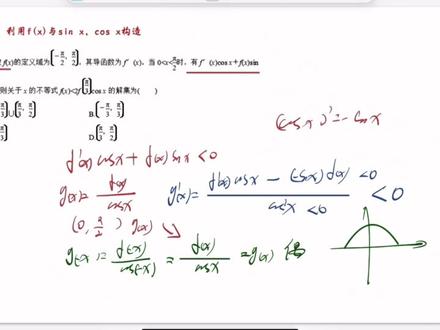 利用f(x)与sin x, cos x构造
f(x)的定义域为(-π/2, π/2),其导函数为f′(x).当0<x<π/2时,有f′(x)cos x+f(x)sin
则关于x的不等式f(x)<2f(π/3)cos x的解集为( )
π/3)∪(π/3, π/2) B.(-π/3, π/3)
D.(π/3, π/2)
(cos x)′=-sin x
f′(x)cos x+f(x)sin x<0
g(x)=f(x)/cos x g′(x)=(f′(x)cos x-(-sin x)f(x))/cos²x <0
(0, π/2) g(x)↘
g(-x)=f(-x)/cos(-x)=f(x)/cos x=g(x) 偶